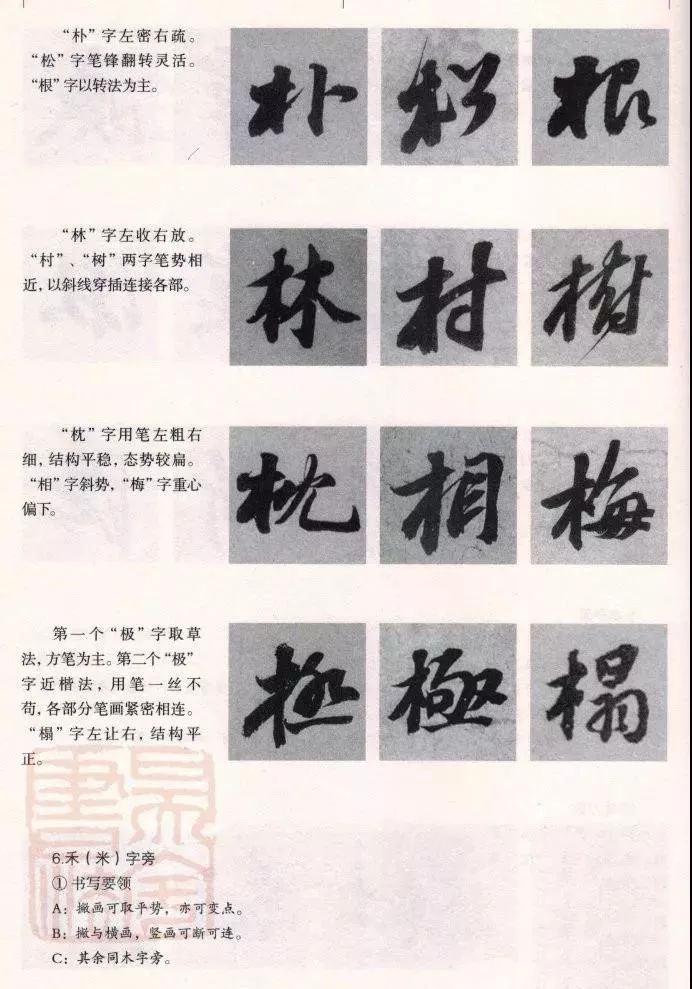 “朴”字左密右疏。
“松”字笔锋翻转灵活。
“根”字以转法为主。
朴 松 根
“林”字左收右放。
“村”、“树”两字笔势相
近，以斜线穿插连接各部。
林 村 樹
“枕”字用笔左粗右
细，结构平稳，态势较扁。
“相”字斜势，“梅”字重心
偏下。
枕 相 梅
第一个“极”字取草
法，方笔为主。第二个“极”
字近楷法，用笔一丝不
苟，各部分笔画紧密相连。
“榻”字左让右，结构平
正。
極 極 榻
6.禾（米）字旁
① 书写要领
A：撇画可取平势，亦可变点。
B：撇与横画，竖画可断可连。
C：其余同木字旁。